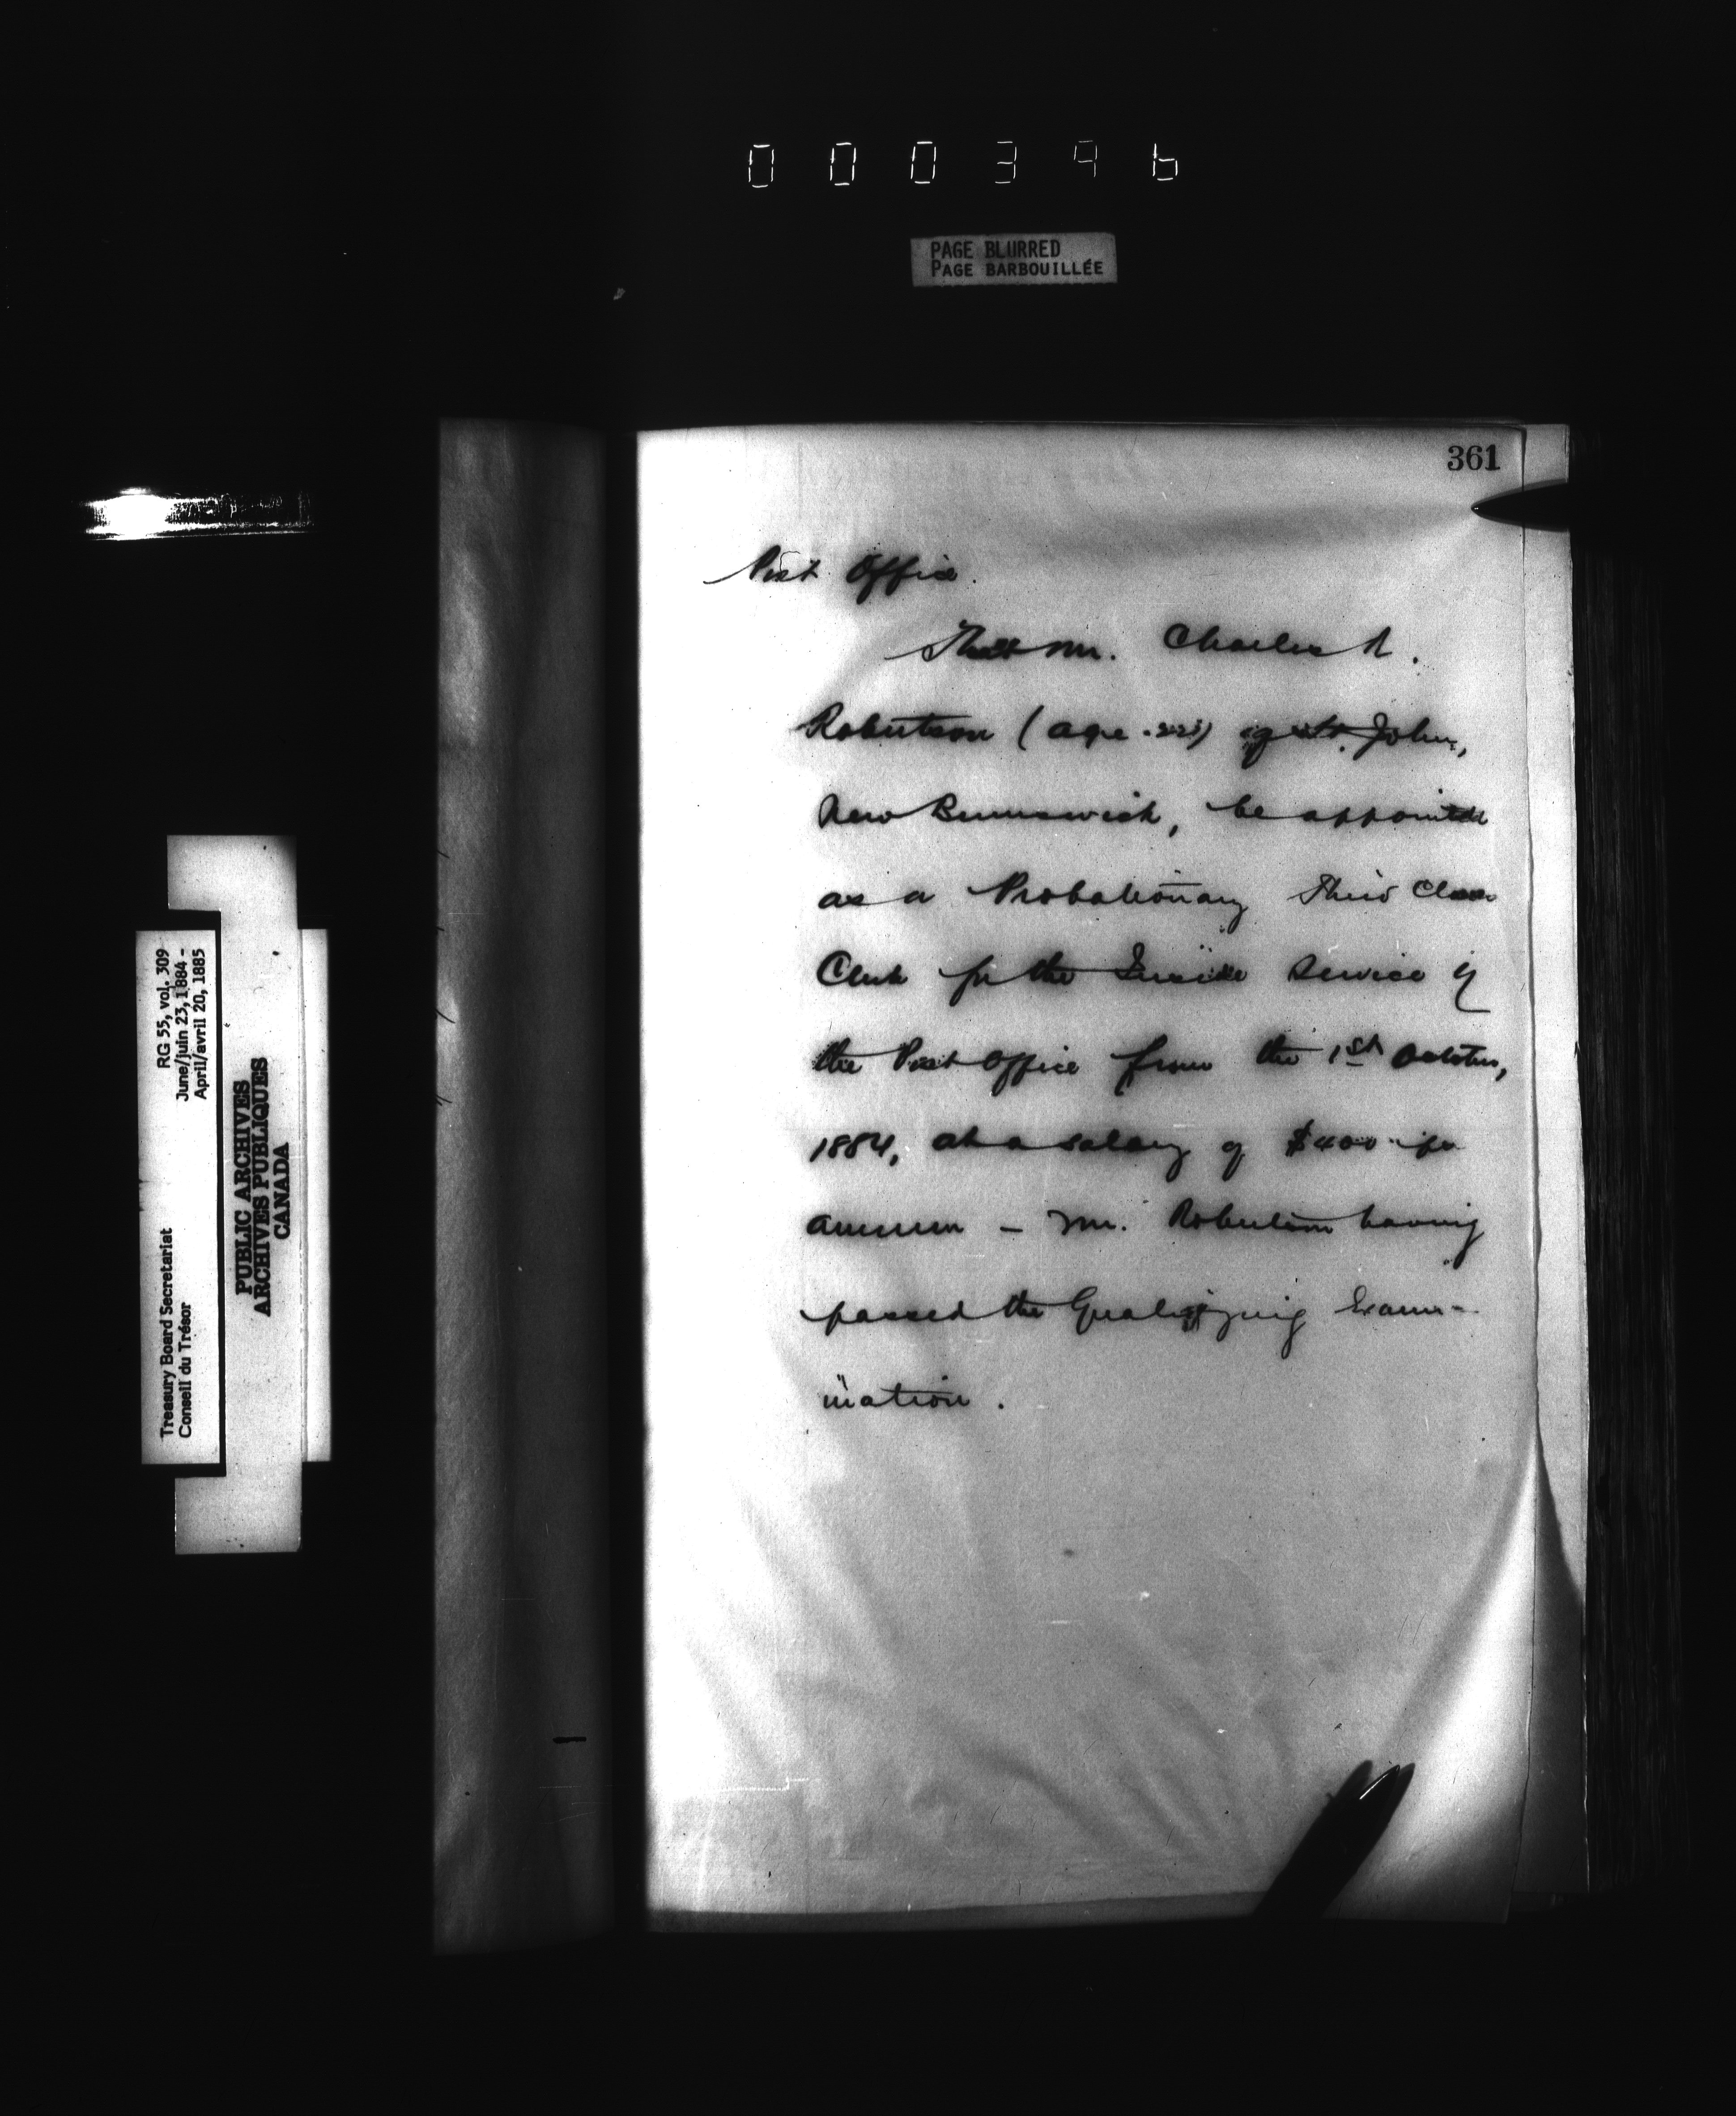 000396
PAGE BLURRED
PAGE BARBOUILLÉE
361
Post Office.
That Mr. Charles A.
Robertson (age 22) of St. John,
New Brunswick, be appointed
as a Probationary Third Class
Clerk for the Inside Service of
the Post Office from the 1st October,
1884, at a salary of $400 per
annum – Mr. Robertson having
passed the Qualifying Exami-
nation.
RG 55, vol. 309
June/juin 23, 1884 -
April/avril 20, 1885
Treasury Board Secretariat
Conseil du Trésor
PUBLIC ARCHIVES
ARCHIVES PUBLIQUES
CANADA